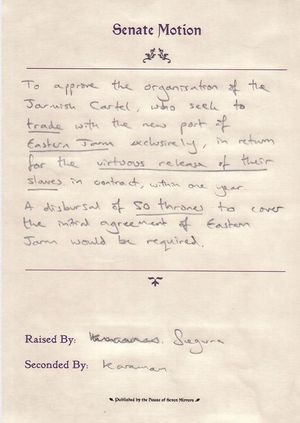 Senate Motion
To approve the organisation of the
Jarmish Cartel, who seek to
trade with the new port of
Eastern Jarm exclusively, in return
for the virtuous release of their
slaves in contract, within one year
A disbursal of 50 thrones to cover
the initial agreement of Eastern
Jarm would be required.
Raised By:
Seconded By:
Published by the House of Seven Mirrors